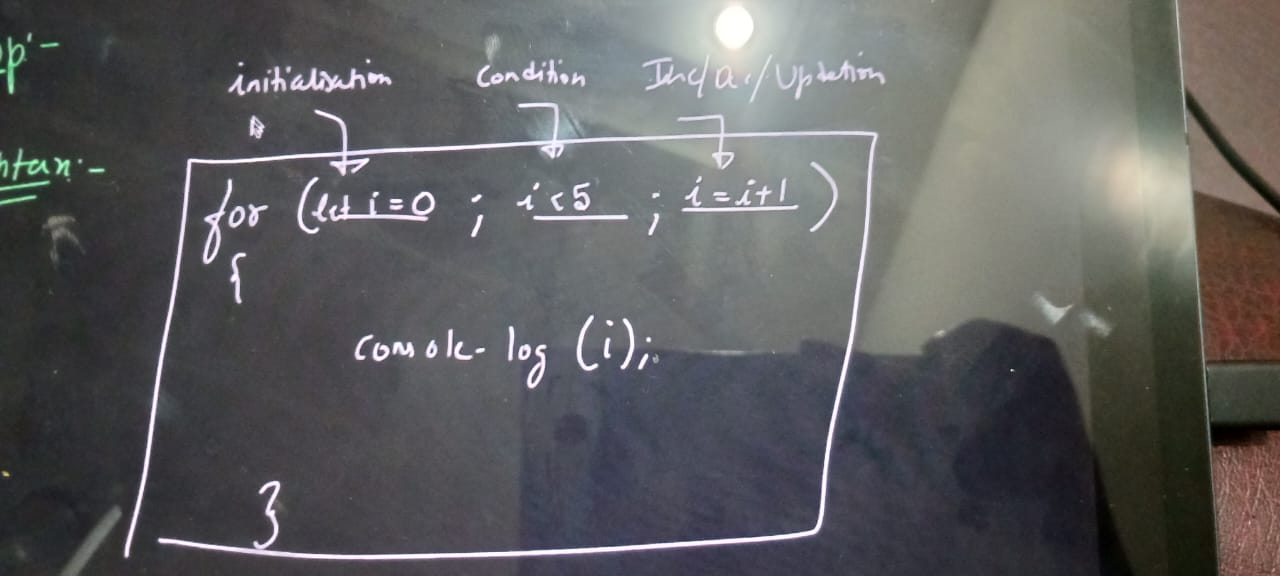 op:-
initialisation condition Inc/ /Updation
ntax:-
for (let i=0 ; i<5 ; i=i+1)
{
console.log (i);
}